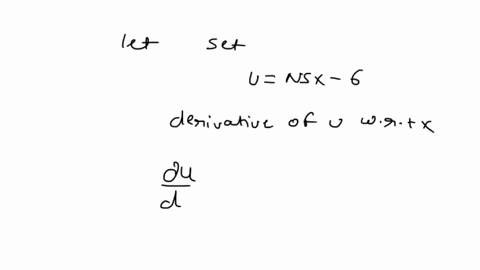 let set
U = N5x - 6
derivative of u w.r.t x
du
d